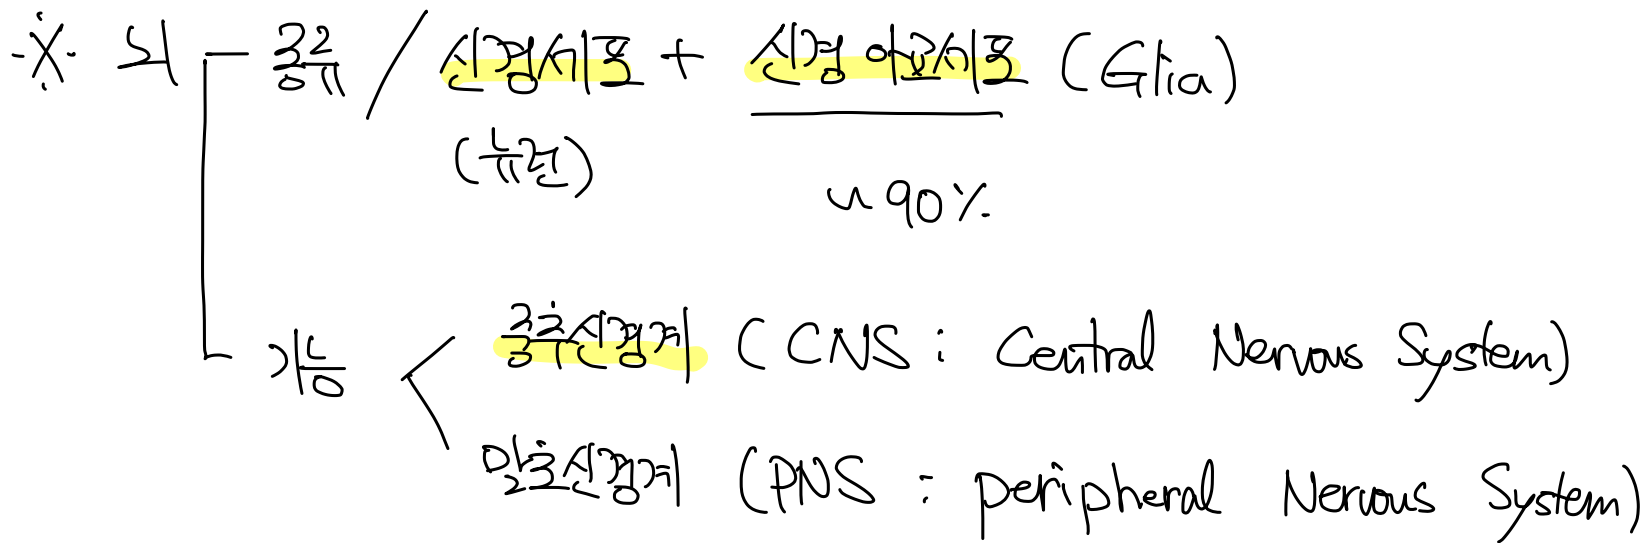 ※ 뇌 - 종류 / 신경세포 + 신경아교세포 (Glia)
(뉴런)
~90%
기능 < 중추신경계 (CNS : Central Nervous System)
말초신경계 (PNS : peripheral Nervous System)